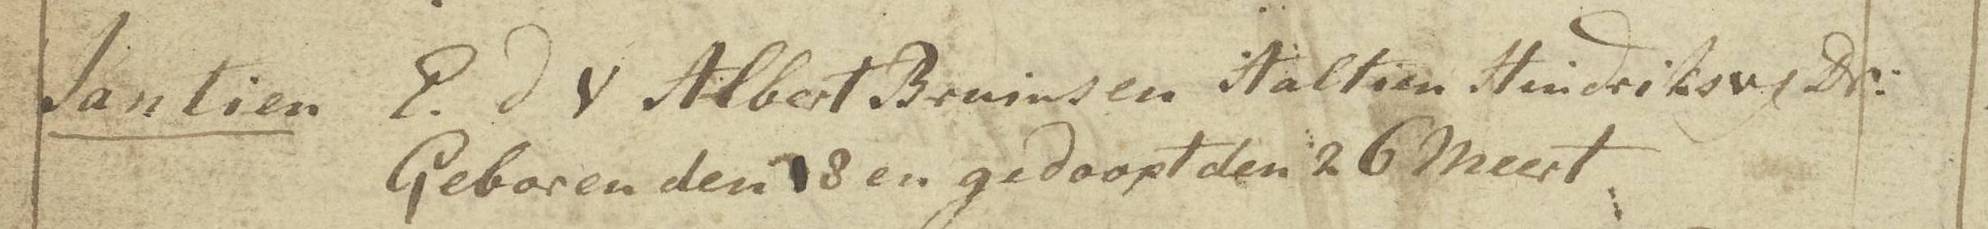 Jantien E. d v Albert Bruins en Aaltien Hindriks v Dr:
Geboren den 18 en gedoopt den 26 Meert